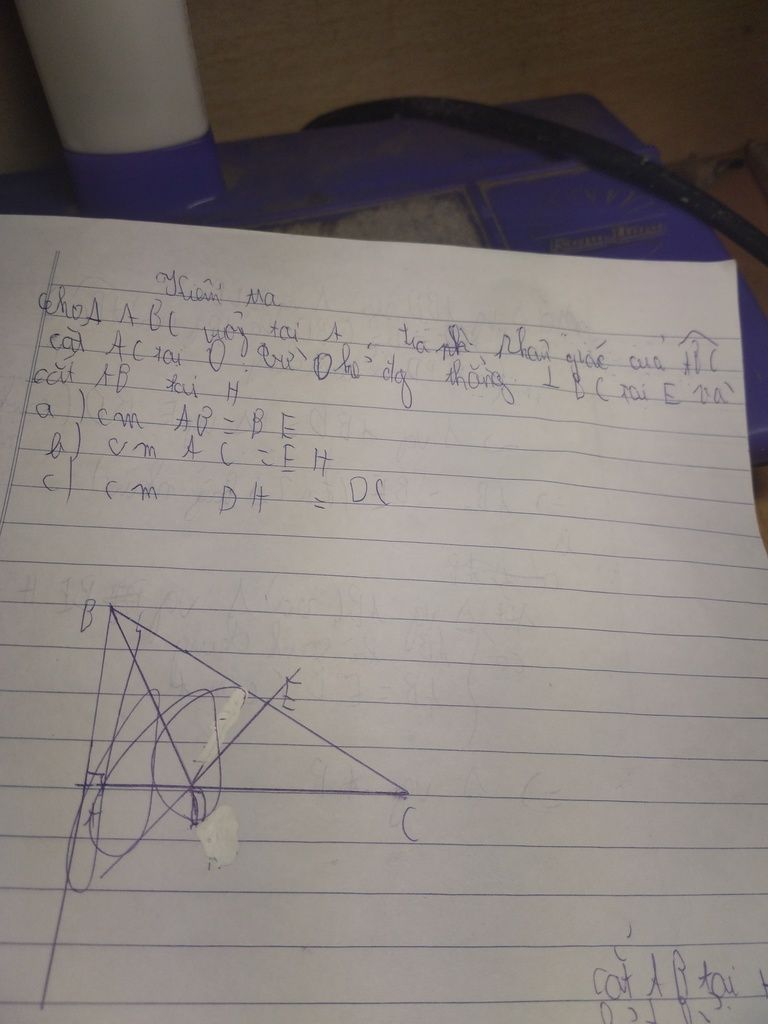 Kiểm tra
cho Δ ABC vuông tại A tia phân giác của ABC
cắt AC tại D từ D kẻ đg thẳng ⊥ BC tại E và
cắt AB tại H
a) cm AB = BE
b) cm AC = EH
c) cm DH = DC
B
E
A
D
C
cắt AB tại H